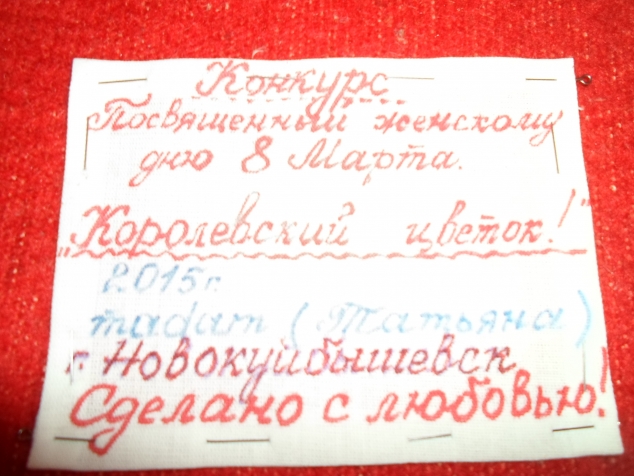 Конкурс
Посвященный женскому
дню 8 Марта.
„Королевский цветок!"
2015г.
madam (Татьяна)
г. Новокуйбышевск
Сделано с любовью!